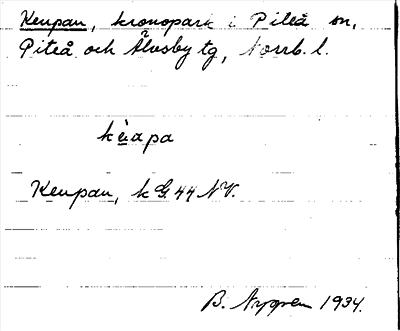 Keupan, kronopark i Piteå sn,
Piteå och Älvsby tg, Norrb. l.
kèu̯apa
Keupan, k G. 44 NV.
B. Nygren 1934.